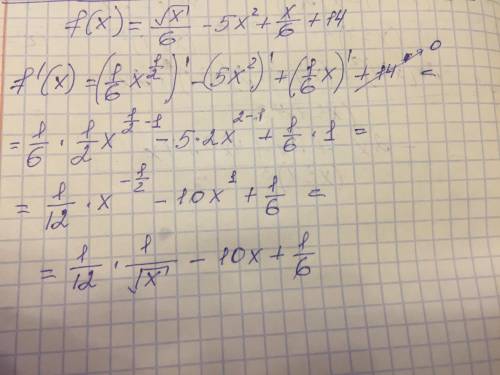 f(x) = √x/6 - 5x² + x/6 + 14
f'(x) = (1/6 x^(1/2))' - (5x²)' + (1/6 x)' + 14' → 0 =
= 1/6 · 1/2 x^(1/2 - 1) - 5·2x^(2-1) + 1/6 · 1 =
= 1/12 · x^(-1/2) - 10x¹ + 1/6 =
= 1/12 · 1/√x - 10x + 1/6